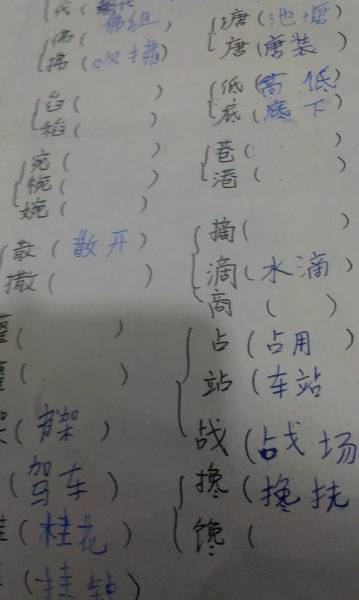 代(
佛(
宛( )
婉( )
散(散开)
撒( )
( )
( )
架(
(驾车)
(桂花)
(挂钟)
塘(池塘)
唐(唐装)
低(高低)
底(底下)
巷( )
港(
摘( )
滴(水滴)
( )
占(占用)
站(车站
战(战场
搀(搀扶
馋(